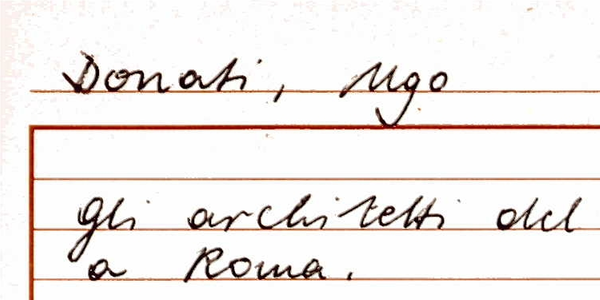 Donati, Ugo
Gli architetti del
a Roma.